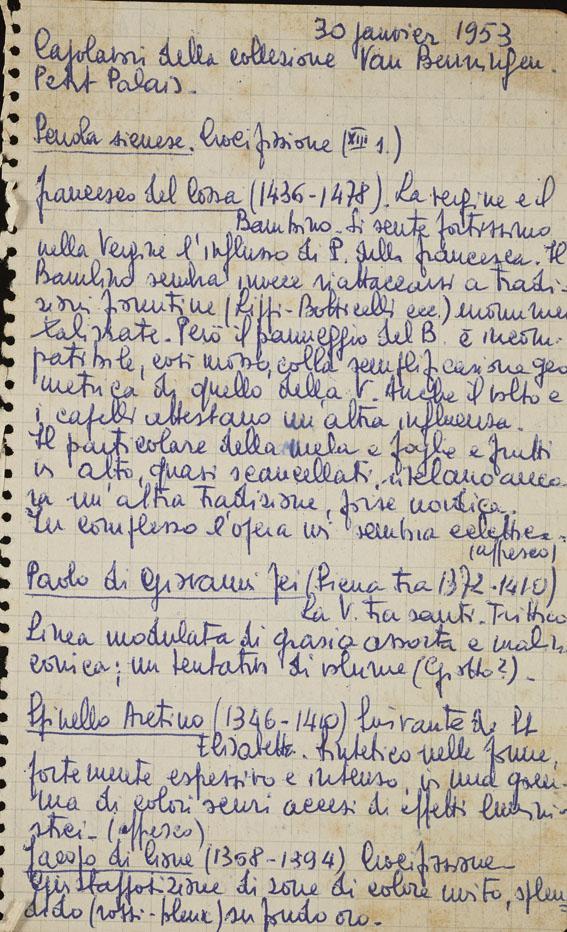 30 janvier 1953
Capolavori della collezione Van Beuningen.
Petit Palais.
Scuola sienese. Crocifissione (XIII s.)
Francesco del Cossa (1436-1478). La vergine e il
Bambino. Si sente fortissimo
nella Vergine l'influsso di P. della Francesca. Il
Bambino sembra invece riattaccarsi a tradi-
zioni fiorentine (Lippi-Botticelli ecc.) monumen
talizzate. Però il panneggio del B. è incom-
patibile, così mosso, colla semplificazione geo
metrica di quello della V. Anche il volto e
i capelli attestano un'altra influenza.
Il particolare della mela e foglie e frutti
in alto, quasi scancellati, rivelano anco-
ra un'altra tradizione, forse nordica.
In complesso l'opera mi sembra eclettica.
(affresco)
Paolo di Giovanni Fei (Siena tra 1372-1410)
La V. tra santi. Trittico
Linea modulata di grazia assorta e malin
conica; un tentativo di volume (Giotto?).
Spinello Aretino (1346-1410) Suivante de St
Elisabeth. Sintetico nelle forme,
fortemente espressivo e intenso, in una gam-
ma di colori scuri accesi di effetti lumini-
stici - (affresco)
Jacopo di Cione (1358-1394) Crocifissione
Giustapposizione di zone di colore unito, splen
dido (rossi-bleux) su fondo oro.